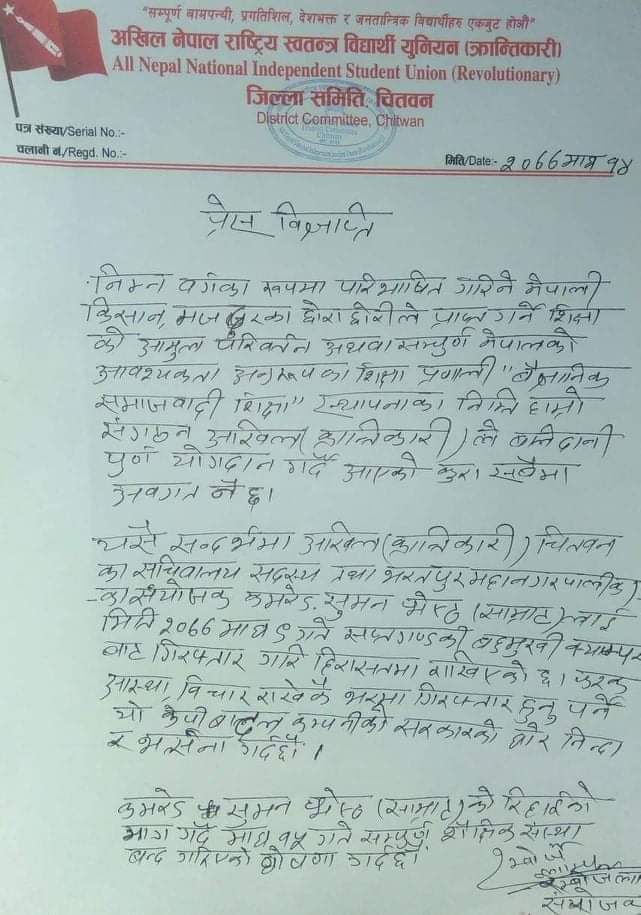 "सम्पूर्ण वामपन्थी, प्रगतिशिल, देशभक्त र जनतान्त्रिक विद्यार्थीहरु एकजुट होऔं"
अखिल नेपाल राष्ट्रिय स्वतन्त्र विद्यार्थी युनियन (क्रान्तिकारी)
All Nepal National Independent Student Union (Revolutionary)
जिल्ला समिति, चितवन
District Committee, Chitwan
पत्र संख्या/Serial No.:-
चलानी नं./Regd. No.:-
मिति/Date:- २०७७ माघ १४
प्रेस विज्ञप्ति
निम्न वर्गका रुपमा परिभाषित गरिने नेपाली
किसान, मजदुरका छोरा छोरीले प्राप्त गर्ने शिक्षा
को आमुल परिवर्तन अथवा सम्पुर्ण नेपालको
आवश्यकता अनुरूपका शिक्षा प्रणाली "वैज्ञानिक
समाजवादी शिक्षा" स्थापनाका निम्ति हाम्रो
संगठन अखिल (क्रान्तिकारी) ले बलिदानी
पुर्ण योगदान गर्दै आएको कुरा सबैमा
अवगत नै छ।
यसै सन्दर्भमा अखिल (क्रान्तिकारी) चितवन
का सचिवालय सदस्य तथा भरतपुर महानगरपालीका
का संयोजक कमरेड सुमन श्रेष्ठ (सम्राट) लाई
मिति २०७७ माघ ९ गते सप्तगण्डकी बहुमुखी क्याम्पस
बाट गिरफ्तार गरि हिरासतमा राखिएको छ। फरक
आस्था विचार राखेकै भरमा गिरफ्तार हुनु पर्ने
यो केपी बादल कम्पनीको सरकारको घोर निन्दा
र भर्त्सना गर्दछौं।
कमरेड सुमन श्रेष्ठ (सम्राट) को रिहाईको
माग गर्दै माघ १५ गते सम्पुर्ण शैक्षिक संस्था
बन्द गरिएको घोषणा गर्दछौं
जिल्ला
संयोजक